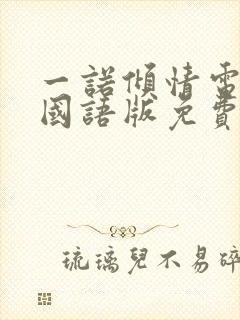 一諾傾情電
國語版免費
琉璃兒不易碎